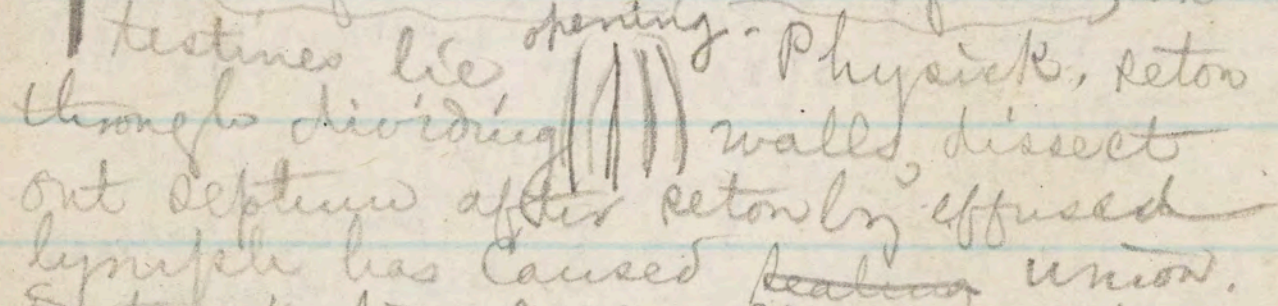 testines lie opening. Physick, seton
through dividing walls, dissect
out septum after seton by effused
lymph has caused healing union.